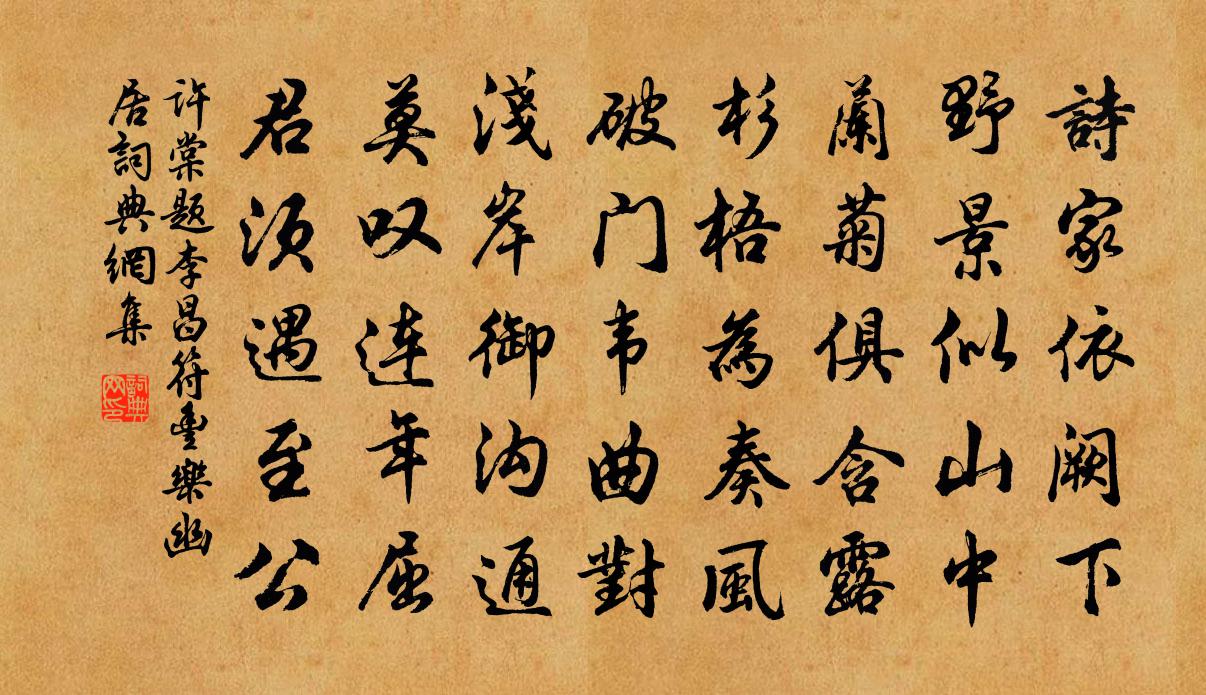 詩家依阙下
野景似山中
蘭菊俱含露
杉梧為奏風
破门韦曲對
淺岸御沟通
莫叹连年屈
君须遇至公
许棠题李昌符豊樂幽
居詞典網集
詞典
网印